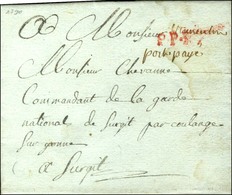 1790
A Monsieur
port payé
P.P.
Monsieur Chevanne
Commandant de la garde
national de Surgit par coulange
Sur yonne
a Surgit